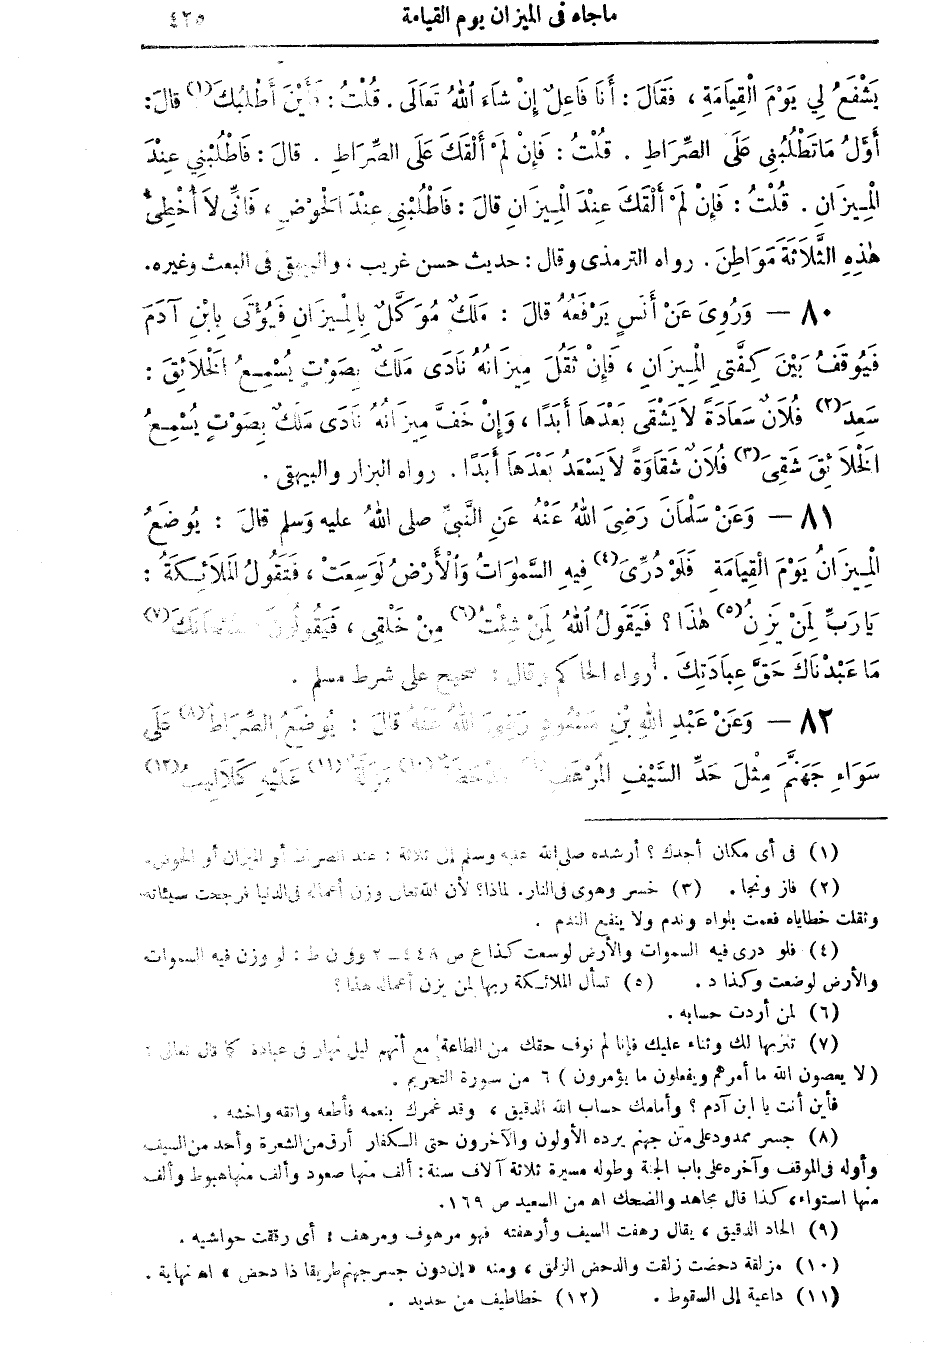 ماجاء فى الميزان يوم القيامة ٤٢٥
يَشْفَعُ لِي يَوْمَ الْقِيَامَةِ ، فَقَالَ : أَنَا فَاعِلٌ إِنْ شَاءَ اللهُ تَعَالَى . قُلْتُ : فَأَيْنَ أَطْلُبُكَ (١) قالَ :
أَوَّلُ مَا تَطْلُبُنِى عَلَى الصِّرَاطِ . قُلْتُ : فَإِنْ لَمْ أَلْقَكَ عَلَى الصِّرَاطِ . قالَ : فَاطْلُبْنِي عِنْدَ
الْمِيزَانِ . قُلْتُ : فَإِنْ لَمْ أَلْقَكَ عِنْدَ الْمِيزَانِ قالَ : فَاطْلُبْنِى عِنْدَ الْحَوْضِ ، فَإِنِّى لاَ أُخْطِئُ
هٰذِهِ الثَّلَاثَةَ مَوَاطِنَ . رواه الترمذى وقال : حديث حسن غريب ، والبيهقى فى البعث وغيره .
٨٠ — وَرُوِىَ عَنْ أَنَسٍ يَرْفَعُهُ قالَ : مَلَكٌ مُوَكَّلٌ بِالْمِيزَانِ فَيُؤْتَى بِابْنِ آدَمَ
فَيُوقَفُ بَيْنَ كِفَّتَىِ الْمِيزَانِ ، فَإِنْ ثَقُلَ مِيزَانُهُ نَادَى مَلَكٌ بِصَوْتٍ يُسْمِعُ الْخَلَائِقَ :
سَعِدَ (٢) فُلَانٌ سَعَادَةً لاَ يَشْقَى بَعْدَهَا أَبَدًا ، وَإِنْ خَفَّ مِيزَانُهُ نَادَى مَلَكٌ بِصَوْتٍ يُسْمِعُ
الْخَلَائِقَ شَقِىَ (٣) فُلَانٌ شَقَاوَةً لاَ يَسْعَدُ بَعْدَهَا أَبَدًا . رواه البزار والبيهقى .
٨١ — وَعَنْ سَلْمَانَ رَضِىَ اللهُ عَنْهُ عَنِ النَّبِيِّ صلى اللهُ عليه وَسلم قالَ : يُوضَعُ
الْمِيزَانُ يَوْمَ الْقِيَامَةِ فَلَوْ دُرِّىَ (٤) فِيهِ السَّمٰوَاتُ وَالْأَرْضُ لَوَسِعَتْ ، فَتَقُولُ الْمَلَائِكَةُ :
يَارَبِّ لِمَنْ يَزِنُ (٥) هٰذَا ؟ فَيَقُولُ اللهُ لِمَنْ شِئْتُ (٦) مِنْ خَلْقِى ، فَيَقُولُونَ سُبْحَانَكَ (٧)
مَا عَبَدْنَاكَ حَقَّ عِبَادَتِكَ . رواه الحاكم وقال : صحيح على شرط مسلم .
٨٢ — وَعَنْ عَبْدِ اللهِ بْنِ مَسْعُودٍ رَضِىَ اللهُ عَنْهُ قالَ : يُوضَعُ الصِّرَاطُ (٨) عَلَى
سَوَاءِ جَهَنَّمَ مِثْلَ حَدِّ السَّيْفِ الْمُرْهَفِ (٩) مَدْحَضَةٌ (١٠) مَزَلَّةٌ (١١) عَلَيْهِ كَلَالِيبُ (١٢)
(١) فى أى مكان أجدك ؟ أرشده صلى الله عليه وسلم إلى ثلاثة : عند الصراط أو الميزان أو الحوض .
(٢) فاز ونجا . (٣) خسر وهوى فى النار . لماذا؟ لأن الله تعالى وزن أعماله فى الدنيا فرجحت سيئاته
وثقلت خطاياه فعمت بلواه وندم ولا ينفع الندم .
(٤) فلو درى فيه السموات والأرض لوسعت كذا ع ص ٤٤٨ — ٢ وفى ن ط : لو وزن فيه السموات
والأرض لوضعت وكذا د . (٥) تسأل الملائكة ربها لمن يزن أعماله هذا ؟
(٦) لمن أردت حسابه .
(٧) تنزيها لك وثناء عليك فإنا لم نوف حقك من الطاعة مع أنهم ليل نهار فى عبادة كما قال تعالى :
( لا يعصون الله ما أمرهم ويفعلون ما يؤمرون ) ٦ من سورة التحريم .
فأين أنت يا ابن آدم ؟ وأمامك حساب الله الدقيق ، وقد غمرك بنعمه فأطعه واتقه واخشه .
(٨) جسر ممدود على متن جهنم يرده الأولون والآخرون حتى الكفار أرق من الشعرة وأحد من السيف
وأوله فى الموقف وآخره على باب الجنة وطوله مسيرة ثلاثة آلاف سنة : ألف منها صعود وألف منها هبوط وألف
منها استواء، كذا قال مجاهد والضحك اه من السعيد ص ١٦٩ .
(٩) الحاد الدقيق ، يقال رهفت السيف وأرهفته فهو مرهوف ومرهف : أى رققت حواشيه .
(١٠) مزلقة دحضت زلقت والدحض الزلق ، ومنه « إن دون جسر جهنم طريقا ذا دحض » اه نهاية .
(١١) داعية إلى السقوط . (١٢) خطاطيف من حديد .